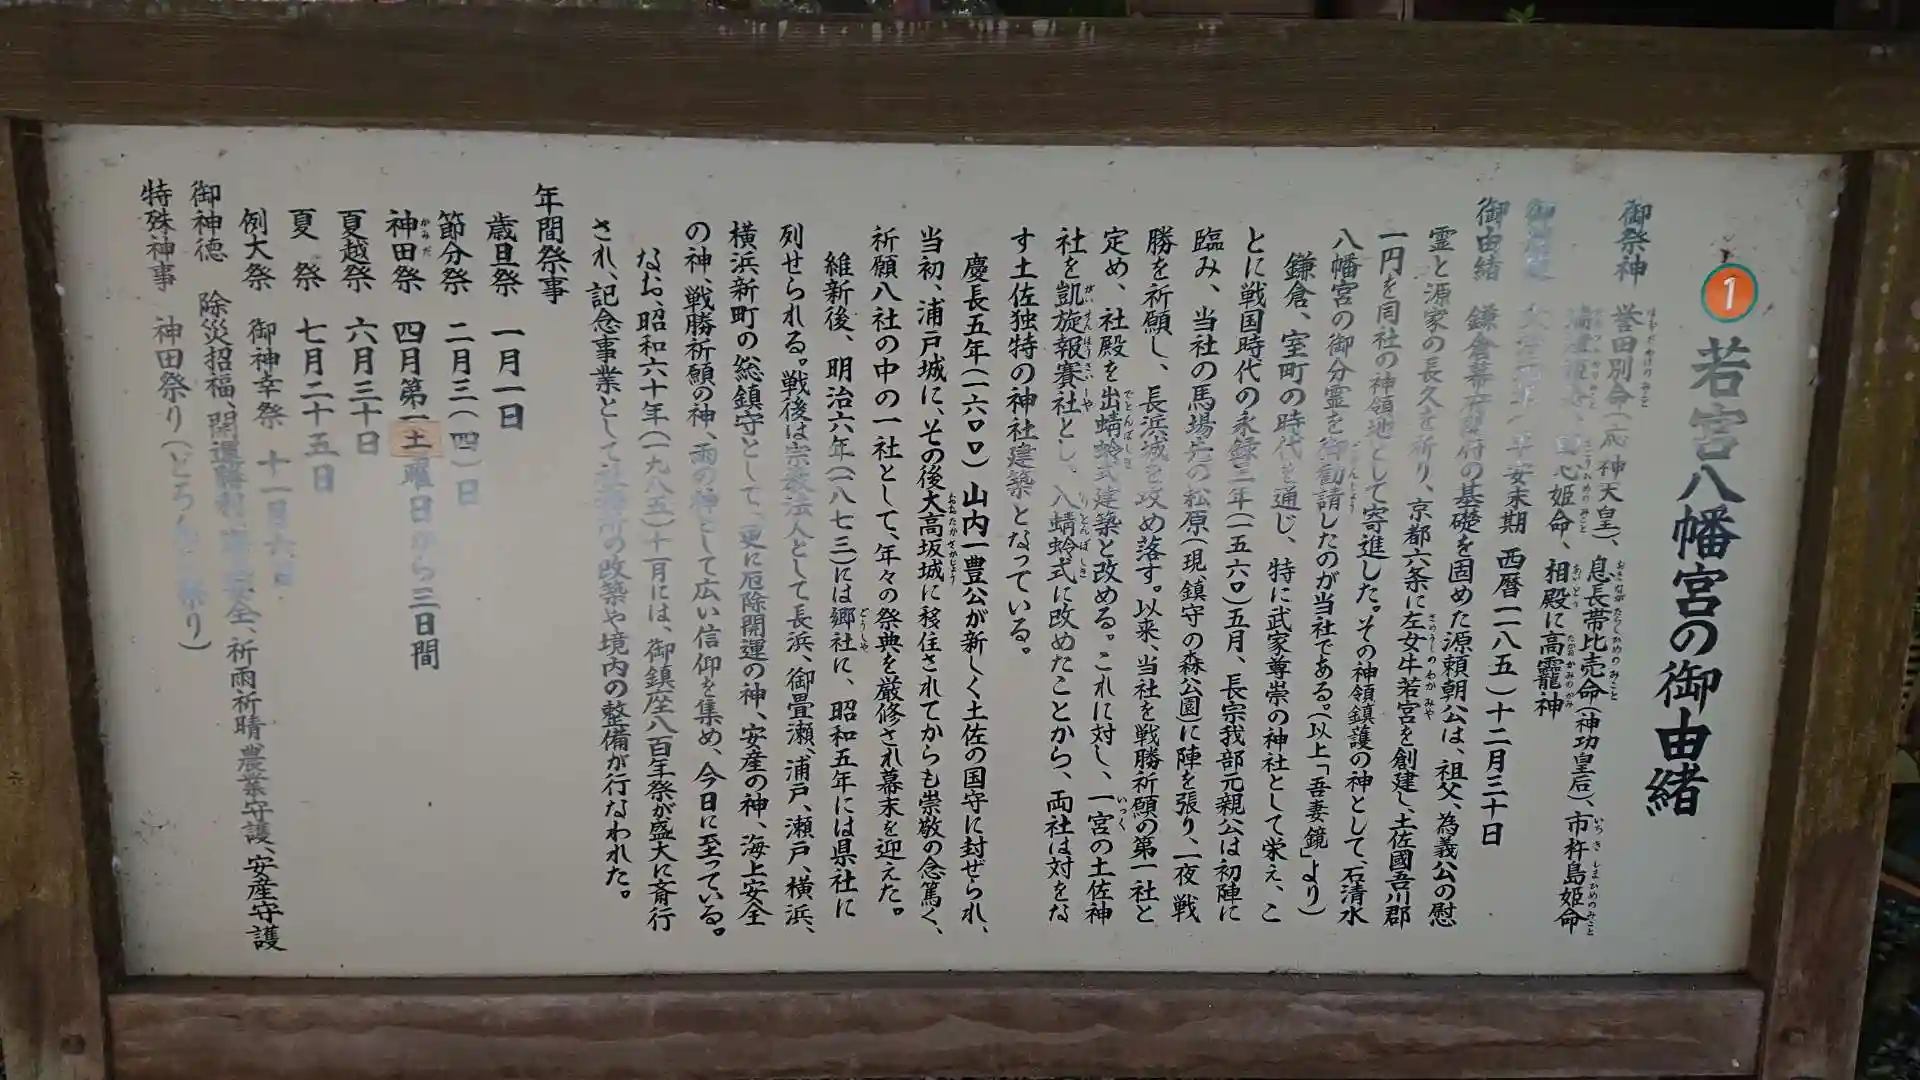 1 若宮八幡宮の御由緒
御祭神 誉田別命(応神天皇)、息長帯比売命(神功皇后)、市杵島姫命
姫命、相殿に高龗神
平安末期 西暦一一八五)十二月三十日
御由緒 鎌倉幕府の基礎を固めた源頼朝公は、祖父、為義公の慰
霊と源家の長久を祈り、京都六条に左女牛若宮を創建し、土佐國吾川郡
一円を同社の神領地として寄進した。その神領鎮護の神として、石清水
八幡宮の御分霊を御勧請したのが当社である。(以上「吾妻鏡」より)
鎌倉、室町の時代を通じ、特に武家尊崇の神社として栄え、こ
とに戦国時代の永録三年(一五六〇)五月、長宗我部元親公は初陣に
臨み、当社の馬場先の松原(現、鎮守の森公園)に陣を張り、一夜戦
勝を祈願し、長浜城を攻め落す。以来、当社を戦勝祈願の第一社と
定め、社殿を出蜻蛉式建築と改める。これに対し、一宮の土佐神
社を凱旋報賽社とし、入蜻蛉式に改めたことから、両社は対をな
す土佐独特の神社建築となっている。
慶長五年(一六〇〇)山内一豊公が新しく土佐の国守に封ぜられ、
当初、浦戸城に、その後大高坂城に移住されてからも崇敬の念篤く、
祈願八社の中の一社として、年々の祭典を厳修され幕末を迎えた。
維新後、明治六年(一八七三)には郷社に、昭和五年には県社に
列せられる。戦後は宗教法人として長浜、御畳瀬、浦戸、瀬戸、横浜、
横浜新町の総鎮守として、更に厄除開運の神、安産の神、海上安全
の神、戦勝祈願の神、雨の神として広い信仰を集め、今日に至っている。
なお、昭和六十年(一九八五)十一月には、御鎮座八百年祭が盛大に斎行
され、記念事業として社務所の改築や境内の整備が行なわれた。
年間祭事
歳旦祭 一月一日
節分祭 二月三(四)日
神田祭 四月第一土曜日から三日間
夏越祭 六月三十日
夏祭 七月二十五日
例大祭 御神幸祭 十一月六日
御神徳 除災招福、開運勝利、海上安全、祈雨祈晴、農業守護、安産守護
特殊神事 神田祭り(どろんこ祭り)